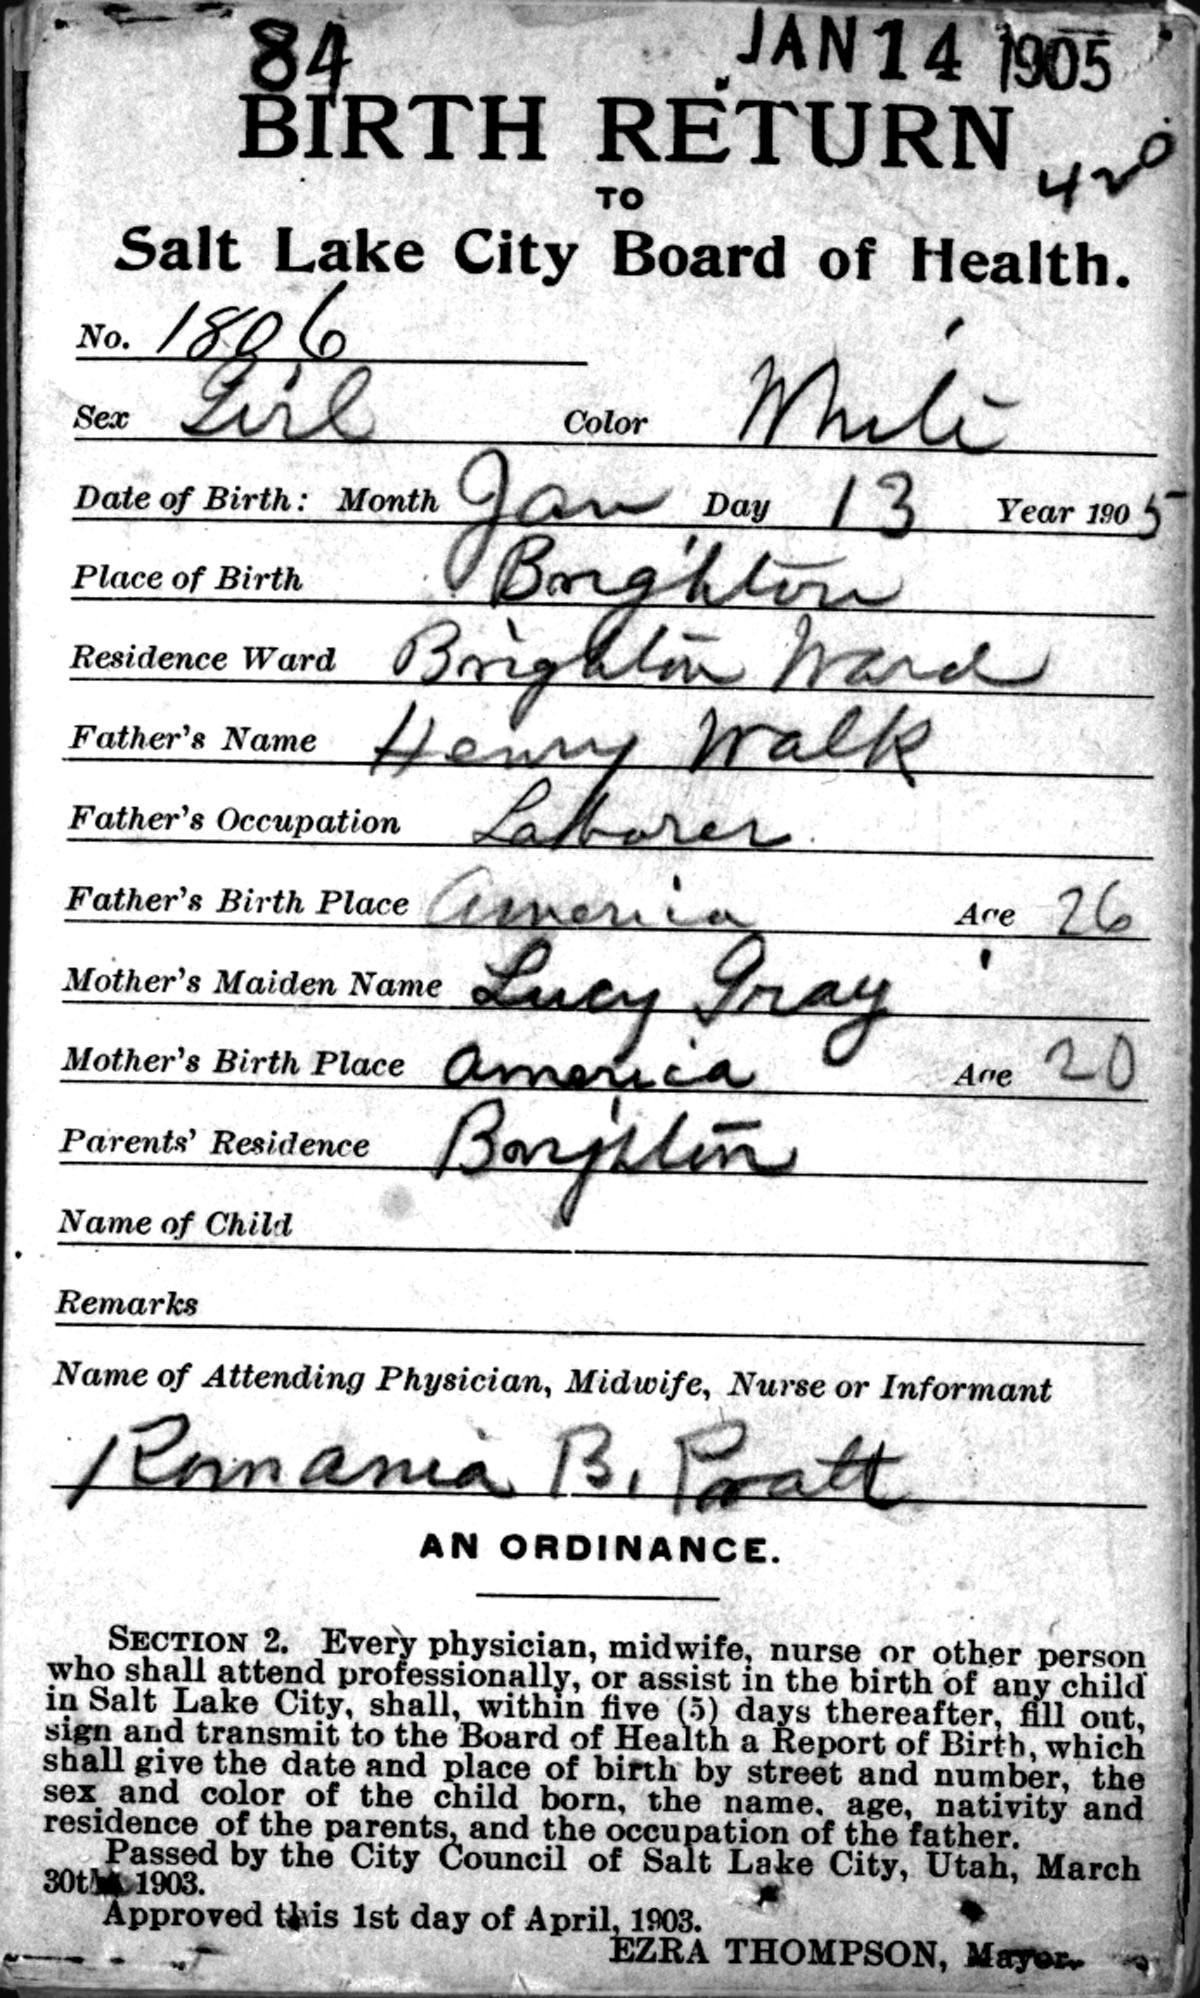 84 JAN 14 1905
BIRTH RETURN
420
TO
Salt Lake City Board of Health.
No. 1806
Sex Girl Color White
Date of Birth: Month Jan Day 13 Year 1905
Place of Birth Brighton
Residence Ward Brighton Ward
Father's Name Henry Walk
Father's Occupation Laborer
Father's Birth Place America Age 26
Mother's Maiden Name Lucy Gray
Mother's Birth Place America Age 20
Parents' Residence Brighton
Name of Child
Remarks
Name of Attending Physician, Midwife, Nurse or Informant
Romania B. Pratt
AN ORDINANCE.
SECTION 2. Every physician, midwife, nurse or other person
who shall attend professionally, or assist in the birth of any child
in Salt Lake City, shall, within five (5) days thereafter, fill out,
sign and transmit to the Board of Health a Report of Birth, which
shall give the date and place of birth by street and number, the
sex and color of the child born, the name, age, nativity and
residence of the parents, and the occupation of the father.
Passed by the City Council of Salt Lake City, Utah, March
30th 1903.
Approved this 1st day of April, 1903.
EZRA THOMPSON, Mayor.